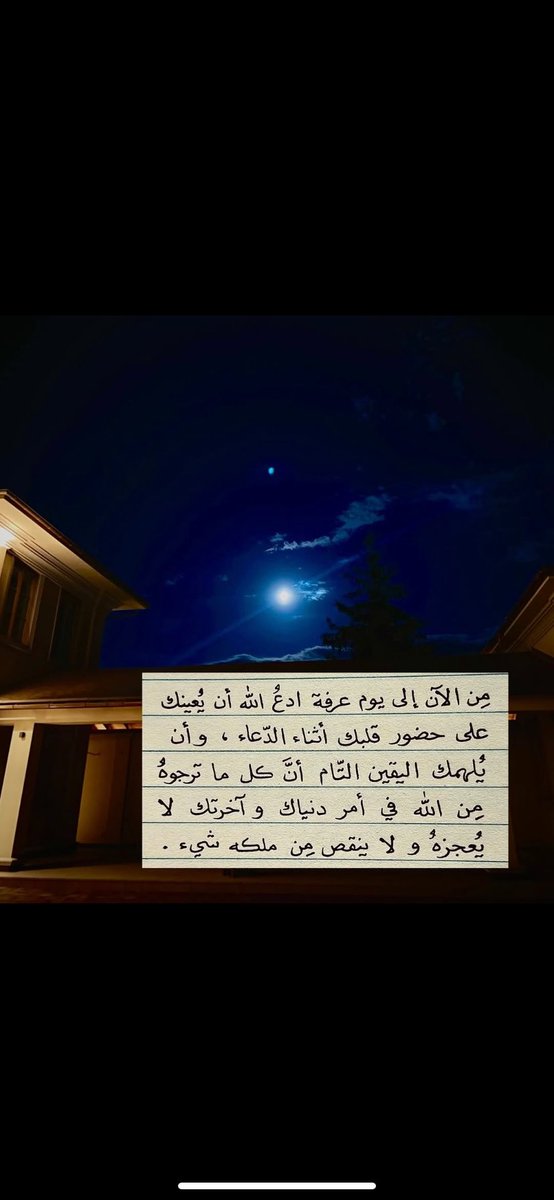 مِن الآن إلى يوم عرفة ادعُ الله أن يُعينك
على حضور قلبك أثناء الدّعاء ، و أن
يُلهمك اليقين التّام أنَّ كل ما ترجوهُ
مِن الله في أمر دنياك و آخرتك لا
يُعجزهُ و لا ينقص مِن ملكه شيء .